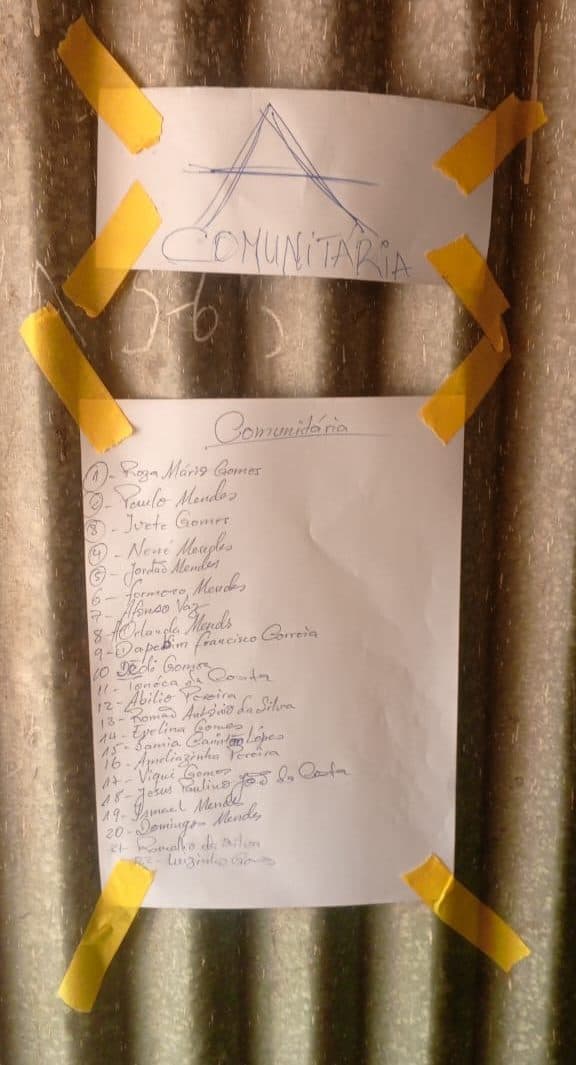 A
COMUNITÁRIA
5-6
Comunitária
1 - Roza Mário Gomes
2 - Paulo Mendes
3 - Ivete Gomes
4 - Nené Mendes
5 - Jordão Mendes
6 - Formoso Mendes
7 - Afonso Vaz
8 - Orlanda Mends
9 - Francisco Correia
10 Dédé Gomes
11 - Tonéca da Costa
12 - Abílio Pereira
13 - Romão António da Silva
14 - Evelina Gomes
15 - Samia Lópes
16 - Ameliazinha Pereira
17 - Viqui Gomes
18 - Jesus Paulino João da Costa
19 - Ismael Mendes
20 - Domingos Mendes
21 - Romalho da Silva
22 - Luizinho Gomes